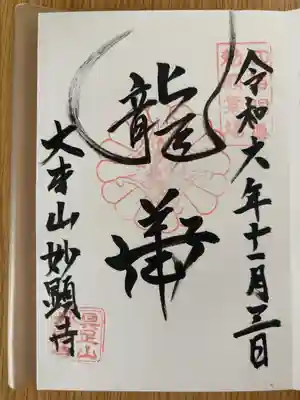 令和六年十一月三日
龍華
大本山妙顯寺
具足山